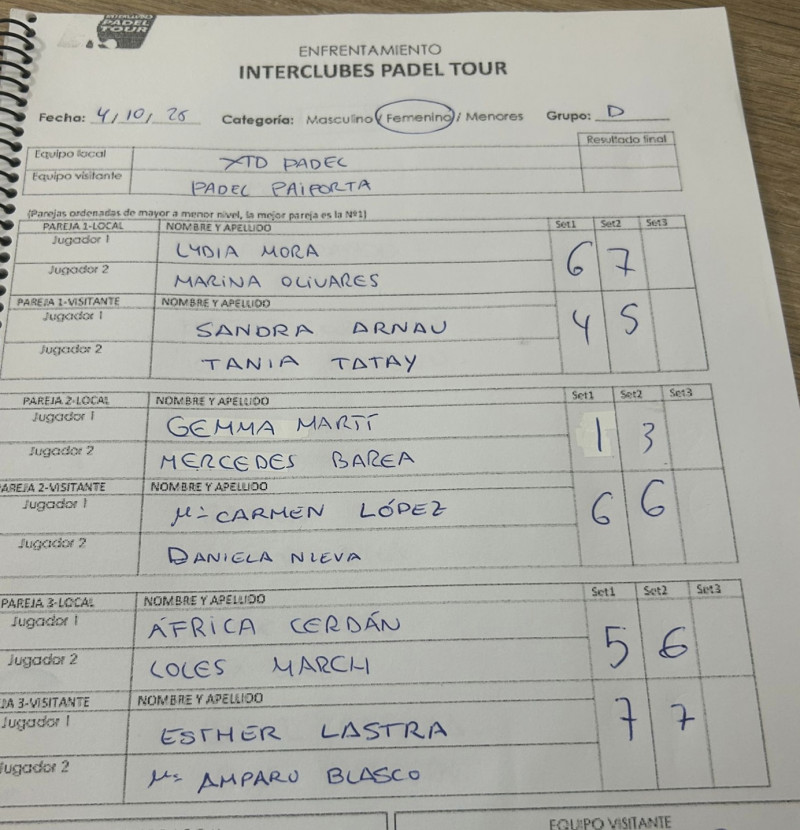 PADEL
TOUR
ENFRENTAMIENTO
INTERCLUBES PADEL TOUR
Fecha: 4/10/25 Categoría: Masculino / Femenino / Menores Grupo: D
Resultado final
Equipo local XTD PADEL
Equipo visitante PADEL PAIPORTA
(Parejas ordenadas de mayor a menor nivel, la mejor pareja es la Nº1)
PAREJA 1-LOCAL NOMBRE Y APELLIDO Set1 Set2 Set3
Jugador 1 LYDIA MORA 6 7
Jugador 2 MARINA OLIVARES
PAREJA 1-VISITANTE NOMBRE Y APELLIDO
Jugador 1 SANDRA ARNAU 4 5
Jugador 2 TANIA TATAY
PAREJA 2-LOCAL NOMBRE Y APELLIDO Set1 Set2 Set3
Jugador 1 GEMMA MARTÍ 1 3
Jugador 2 MERCEDES BAREA
AREJA 2-VISITANTE NOMBRE Y APELLIDO
Jugador 1 Mª CARMEN LÓPEZ 6 6
Jugador 2 DANIELA NIEVA
PAREJA 3-LOCAL NOMBRE Y APELLIDO Set1 Set2 Set3
Jugador 1 ÁFRICA CERDÁN 5 6
Jugador 2 LOLES MARCH
JA 3-VISITANTE NOMBRE Y APELLIDO
Jugador 1 ESTHER LASTRA 7 7
Jugador 2 Mª AMPARO BLASCO
EQUIPO VISITANTE